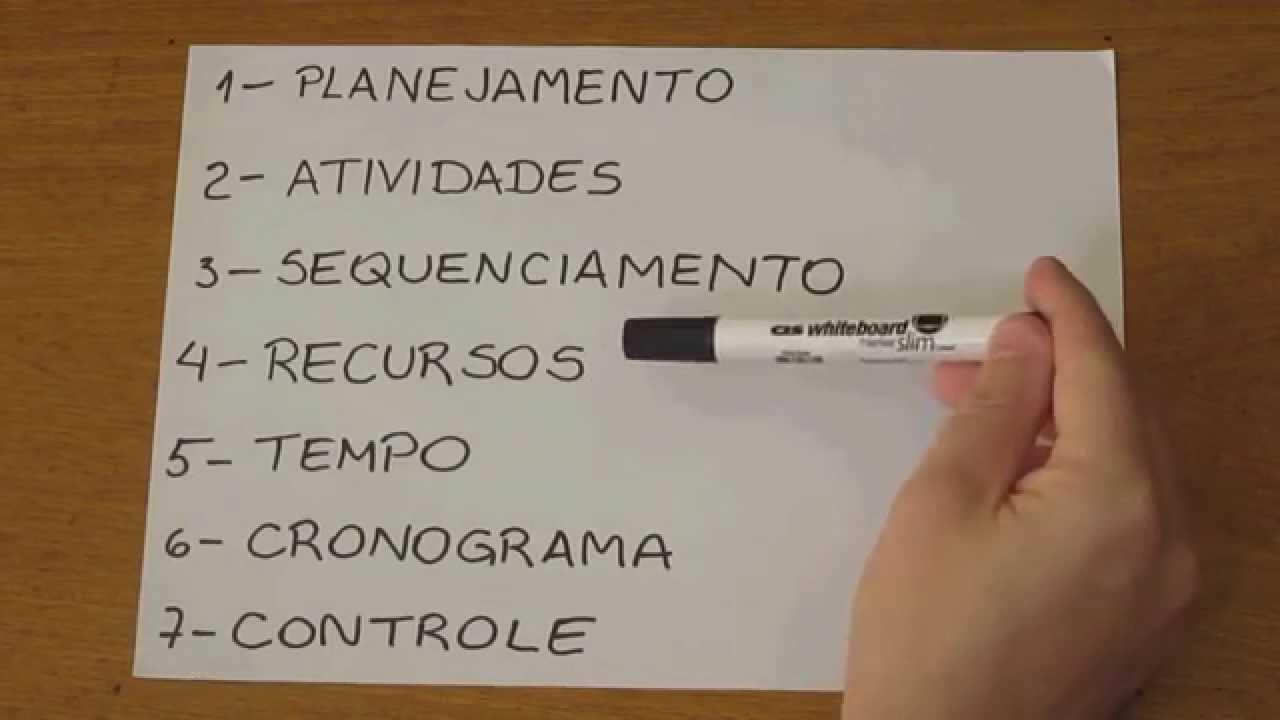 1- PLANEJAMENTO
2- ATIVIDADES
3- SEQUENCIAMENTO
4- RECURSOS
5- TEMPO
6- CRONOGRAMA
7- CONTROLE
CIS whiteboard
marker slim